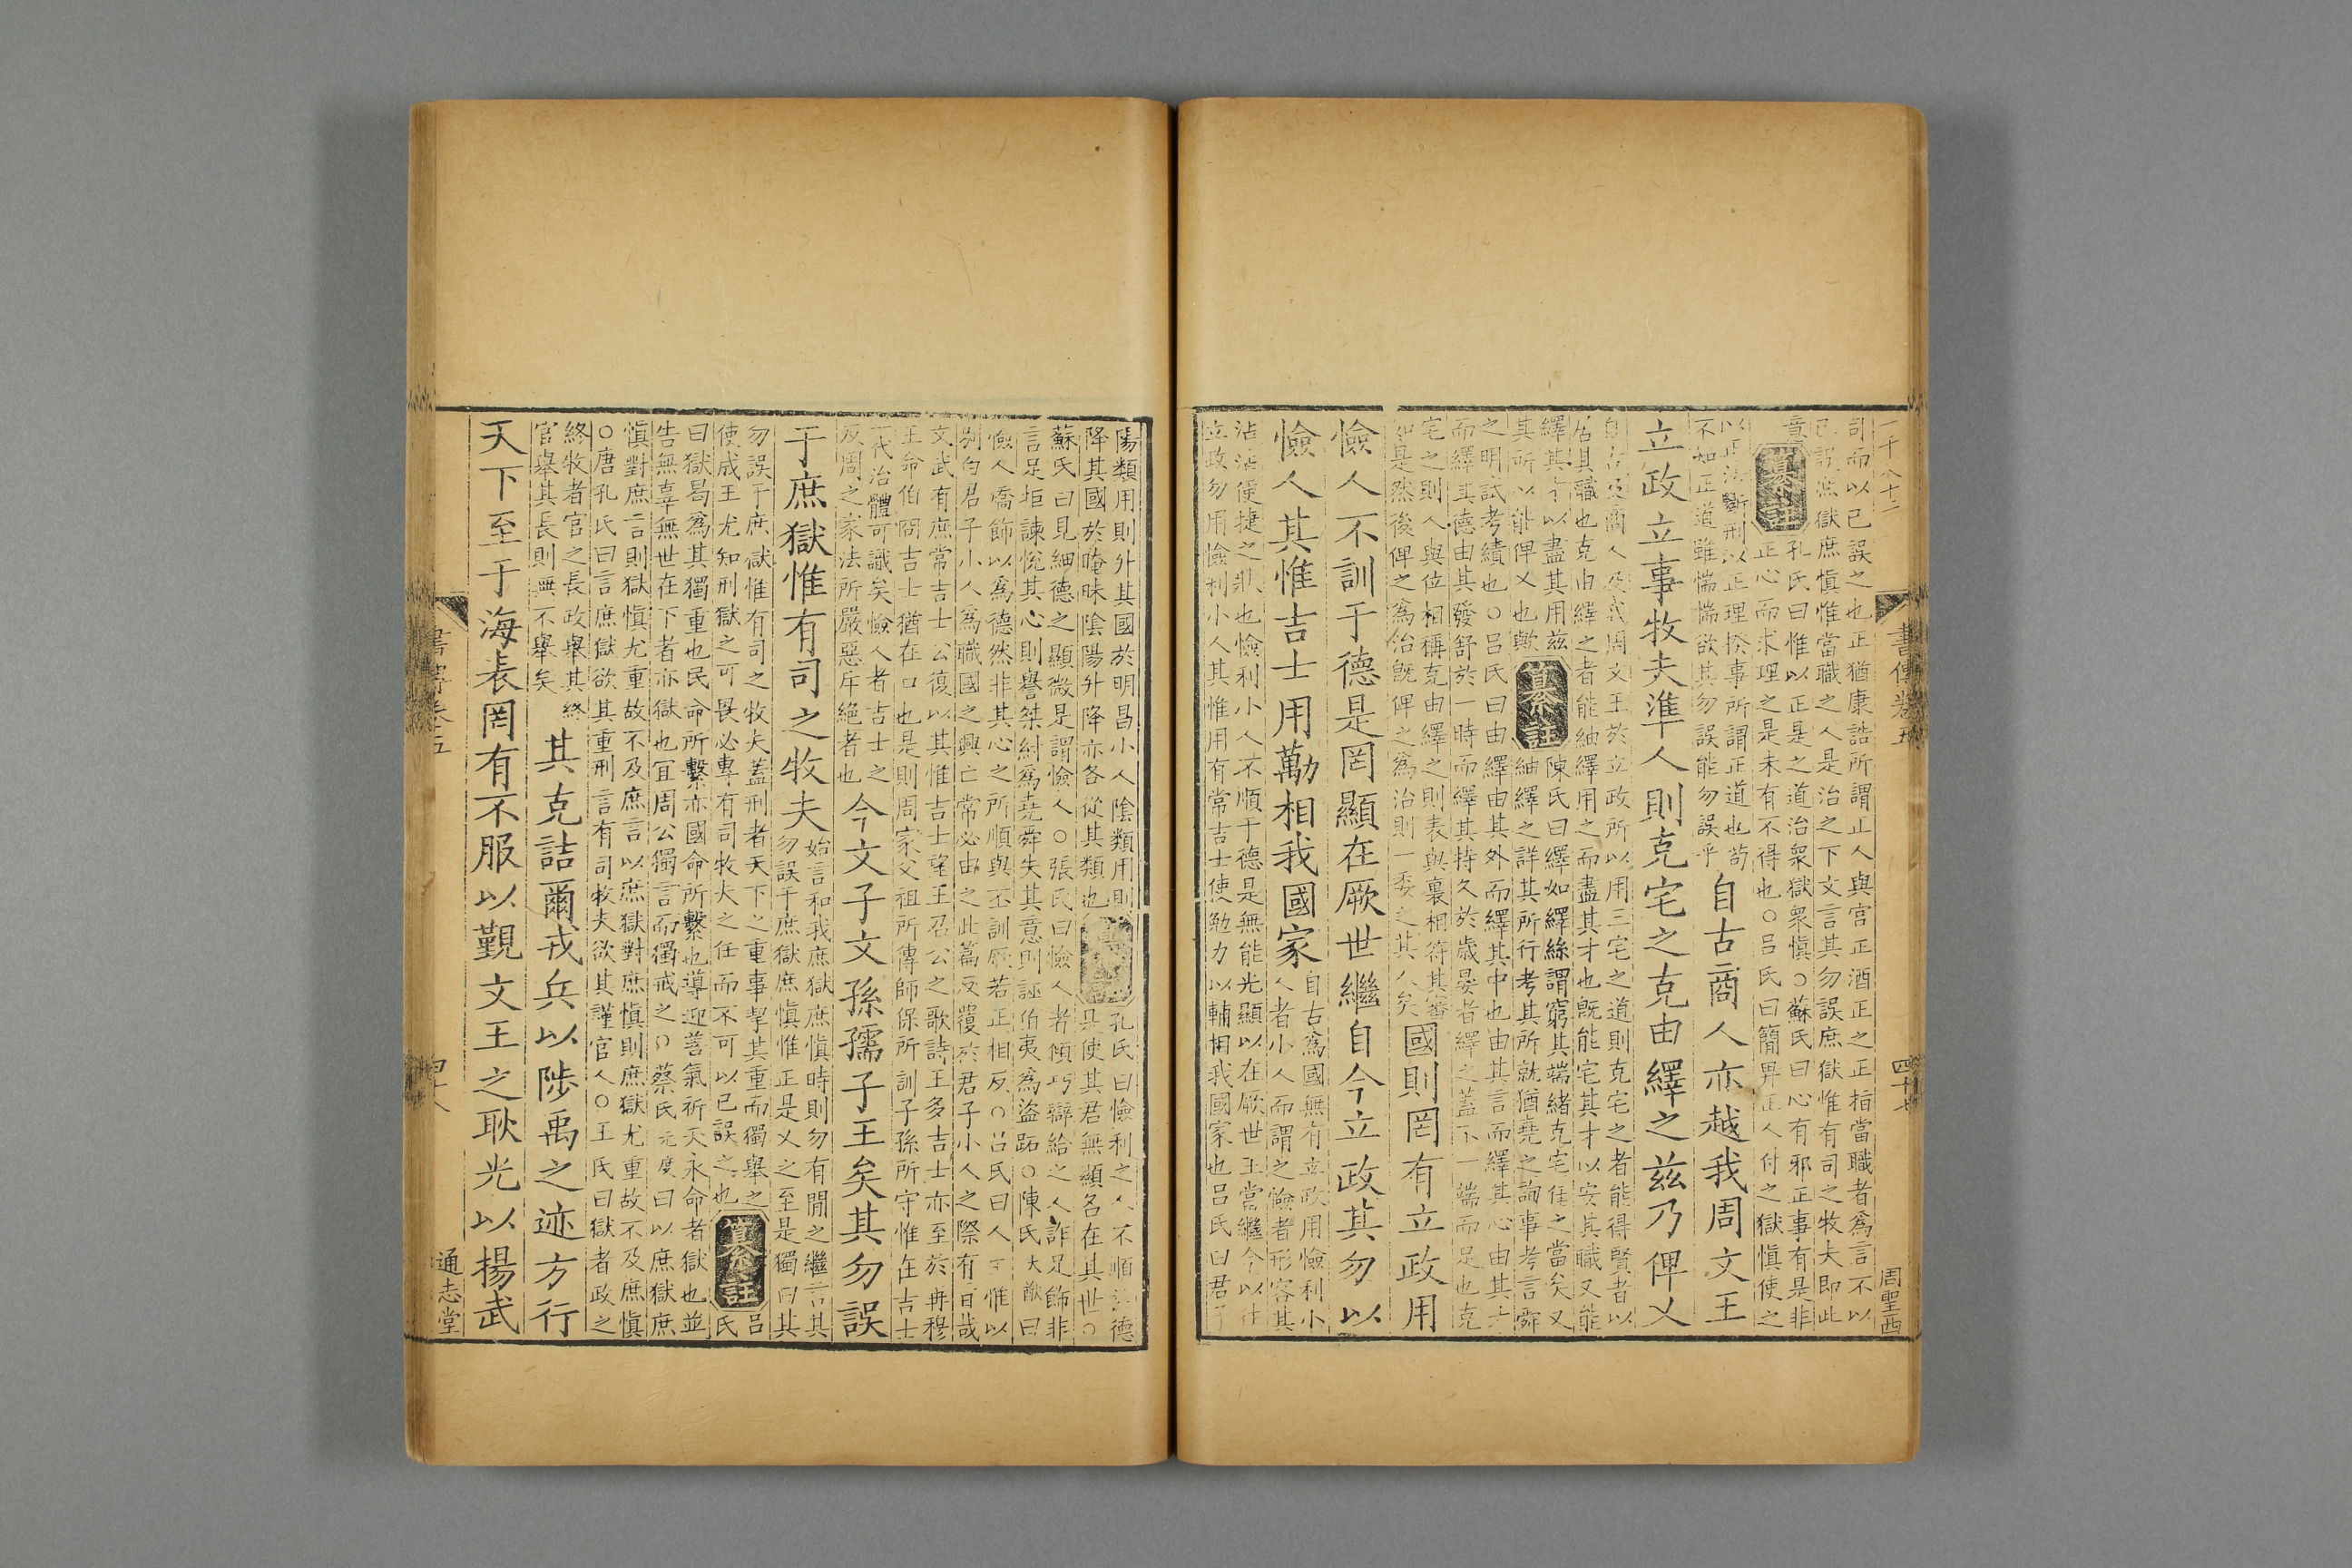 一千八十二
書傳卷五
四十七
周聖西
司而以已誤之也正猶康誥所謂正人與宮正酒正之正指當職者爲言不以
已誤庶獄庶愼惟當職之人是治之下文言其勿誤庶獄惟有司之牧夫即此
意
纂註
孔氏曰惟以正是之道治衆獄衆愼○蘇氏曰心有邪正事有是非
正心而求理之是未有不得也○呂氏曰簡畀正人付之獄愼使之
以正法斷刑以正理揆事所謂正道也苟
不如正道雖惴惴欲其勿誤能勿誤乎
自古商人亦越我周文王
立政立事牧夫準人則克宅之克由繹之茲乃俾乂
自古及商人及我周文王於立政所以用三宅之道則克宅之者能得賢者以
居其職也克由繹之者能紬繹用之而盡其才也既能宅其才以安其職又能
繹其才以盡其用茲
其所以能俾乂也歟
纂註
陳氏曰繹如繹絲謂窮其端緒克宅任之當矣又
紬繹之詳其所行考其所就猶堯之詢事考言舜
之明試考績也○呂氏曰由繹由其外而繹其中也由其言而繹其心由其士
而繹其德由其發舒於一時而繹其持久於歲晏者繹之蓋下一端而足也克
宅之則人與位相稱克由繹之則表與裏相符其審
如是然後俾之爲治既俾之爲治則一委之其人矣
國則罔有立政用
憸人不訓于德是罔顯在厥世繼自今立政其勿以
憸人其惟吉士用勱相我國家
自古爲國無有立政用憸利小
人者小人而謂之憸者形容其
沾沾便捷之狀也憸利小人不順于德是無能光顯以在厥世王當繼今以往
立政勿用憸利小人其惟用有常吉士使勉力以輔相我國家也呂氏曰君子
陽類用則升其國於明昌小人陰類用則
降其國於晻昧陰陽升降亦各從其類也
纂註
孔氏曰憸利之人不順於德
是使其君無顯名在其世○
蘇氏曰見細德之顯微是謂憸人○張氏曰憸人者傾巧辯給之人詐足飾非
言足拒諫悅其心則譽桀紂爲堯舜失其意則誣伯夷爲盜跖○陳氏大猷曰
憸人矯飾以爲德然非其心之所順與丕訓厥若正相反○呂氏曰人主惟以
別白君子小人爲職國之興亡常必由之此篇反覆於君子小人之際有曰哉
文武有庶常吉士公復以其惟吉士望王召公之歌詩王多吉士亦至於再穆
王命伯冏吉士猶在口也是則周家父祖所傳師保所訓子孫所守惟在吉士
一代治體可識矣憸人者吉士之
反周之家法所嚴惡斥絕者也
今文子文孫孺子王矣其勿誤
于庶獄惟有司之牧夫
始言和我庶獄庶愼時則勿有閒之繼言其
勿誤于庶獄庶愼惟正是乂之至是獨曰其
勿誤于庶獄惟有司之牧夫蓋刑者天下之重事挈其重而獨舉之
使成王尤知刑獄之可畏必專有司牧夫之任而不可以已誤之也
纂註
呂
氏
曰獄曷爲其獨重也民命所繫亦國命所繫也導迎善氣祈天永命者獄也並
告無辜無世在下者亦獄也宜周公獨言而獨戒之○蔡氏元度曰以庶獄庶
愼對庶言則獄愼尤重故不及庶言以庶獄對庶愼則庶獄尤重故不及庶愼
○唐孔氏曰言庶獄欲其重刑言有司牧夫欲其謹官人○王氏曰獄者政之
終牧者官之長政舉其終
官舉其長則無不舉矣
其克詰爾戎兵以陟禹之迹方行
天下至于海表罔有不服以覲文王之耿光以揚武
書傳卷五
四十八
通志堂